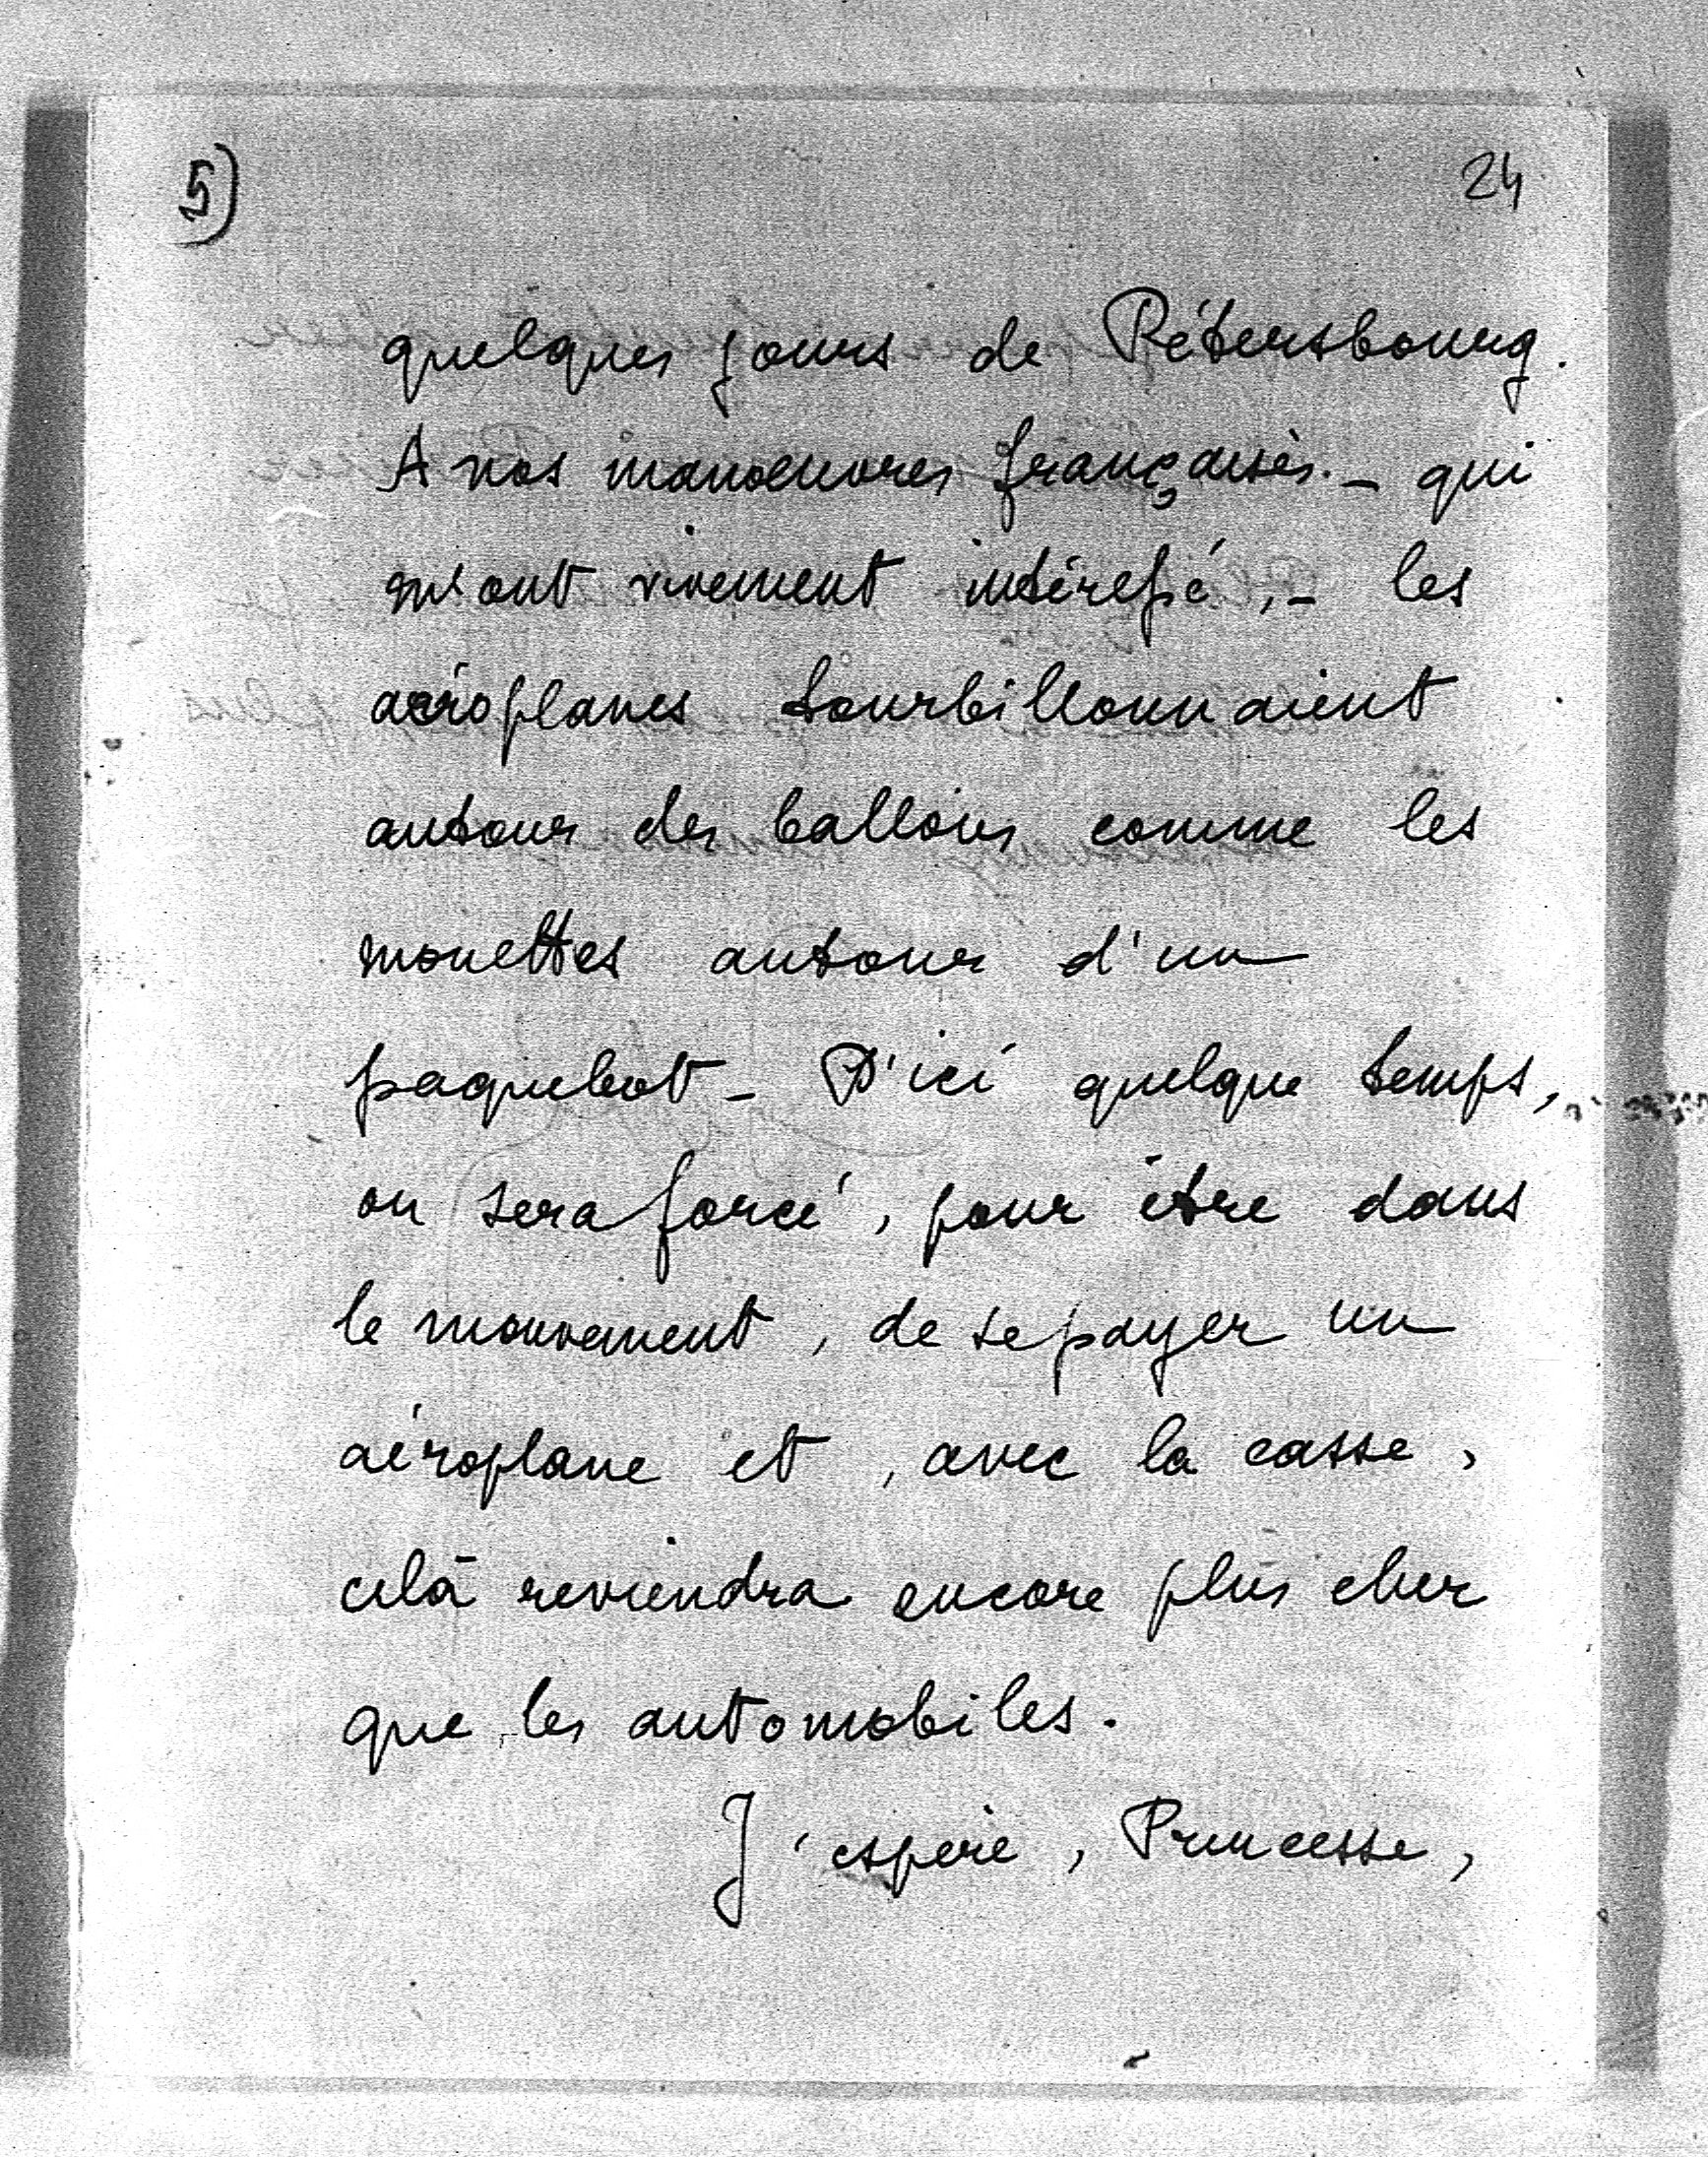 5) 24
quelques jours de Pétersbourg.
A nos manoeuvres françaises. - qui
m'ont vivement intéressé, - les
aéroplanes tourbillonnaient
autour des ballons comme les
mouettes autour d'un
paquebot - D'ici quelque temps,
on sera forcé, pour être dans
le mouvement, de se payer un
aéroplane et, avec la casse,
celà reviendra encore plus cher
que les automobiles.
J'espère, Princesse,